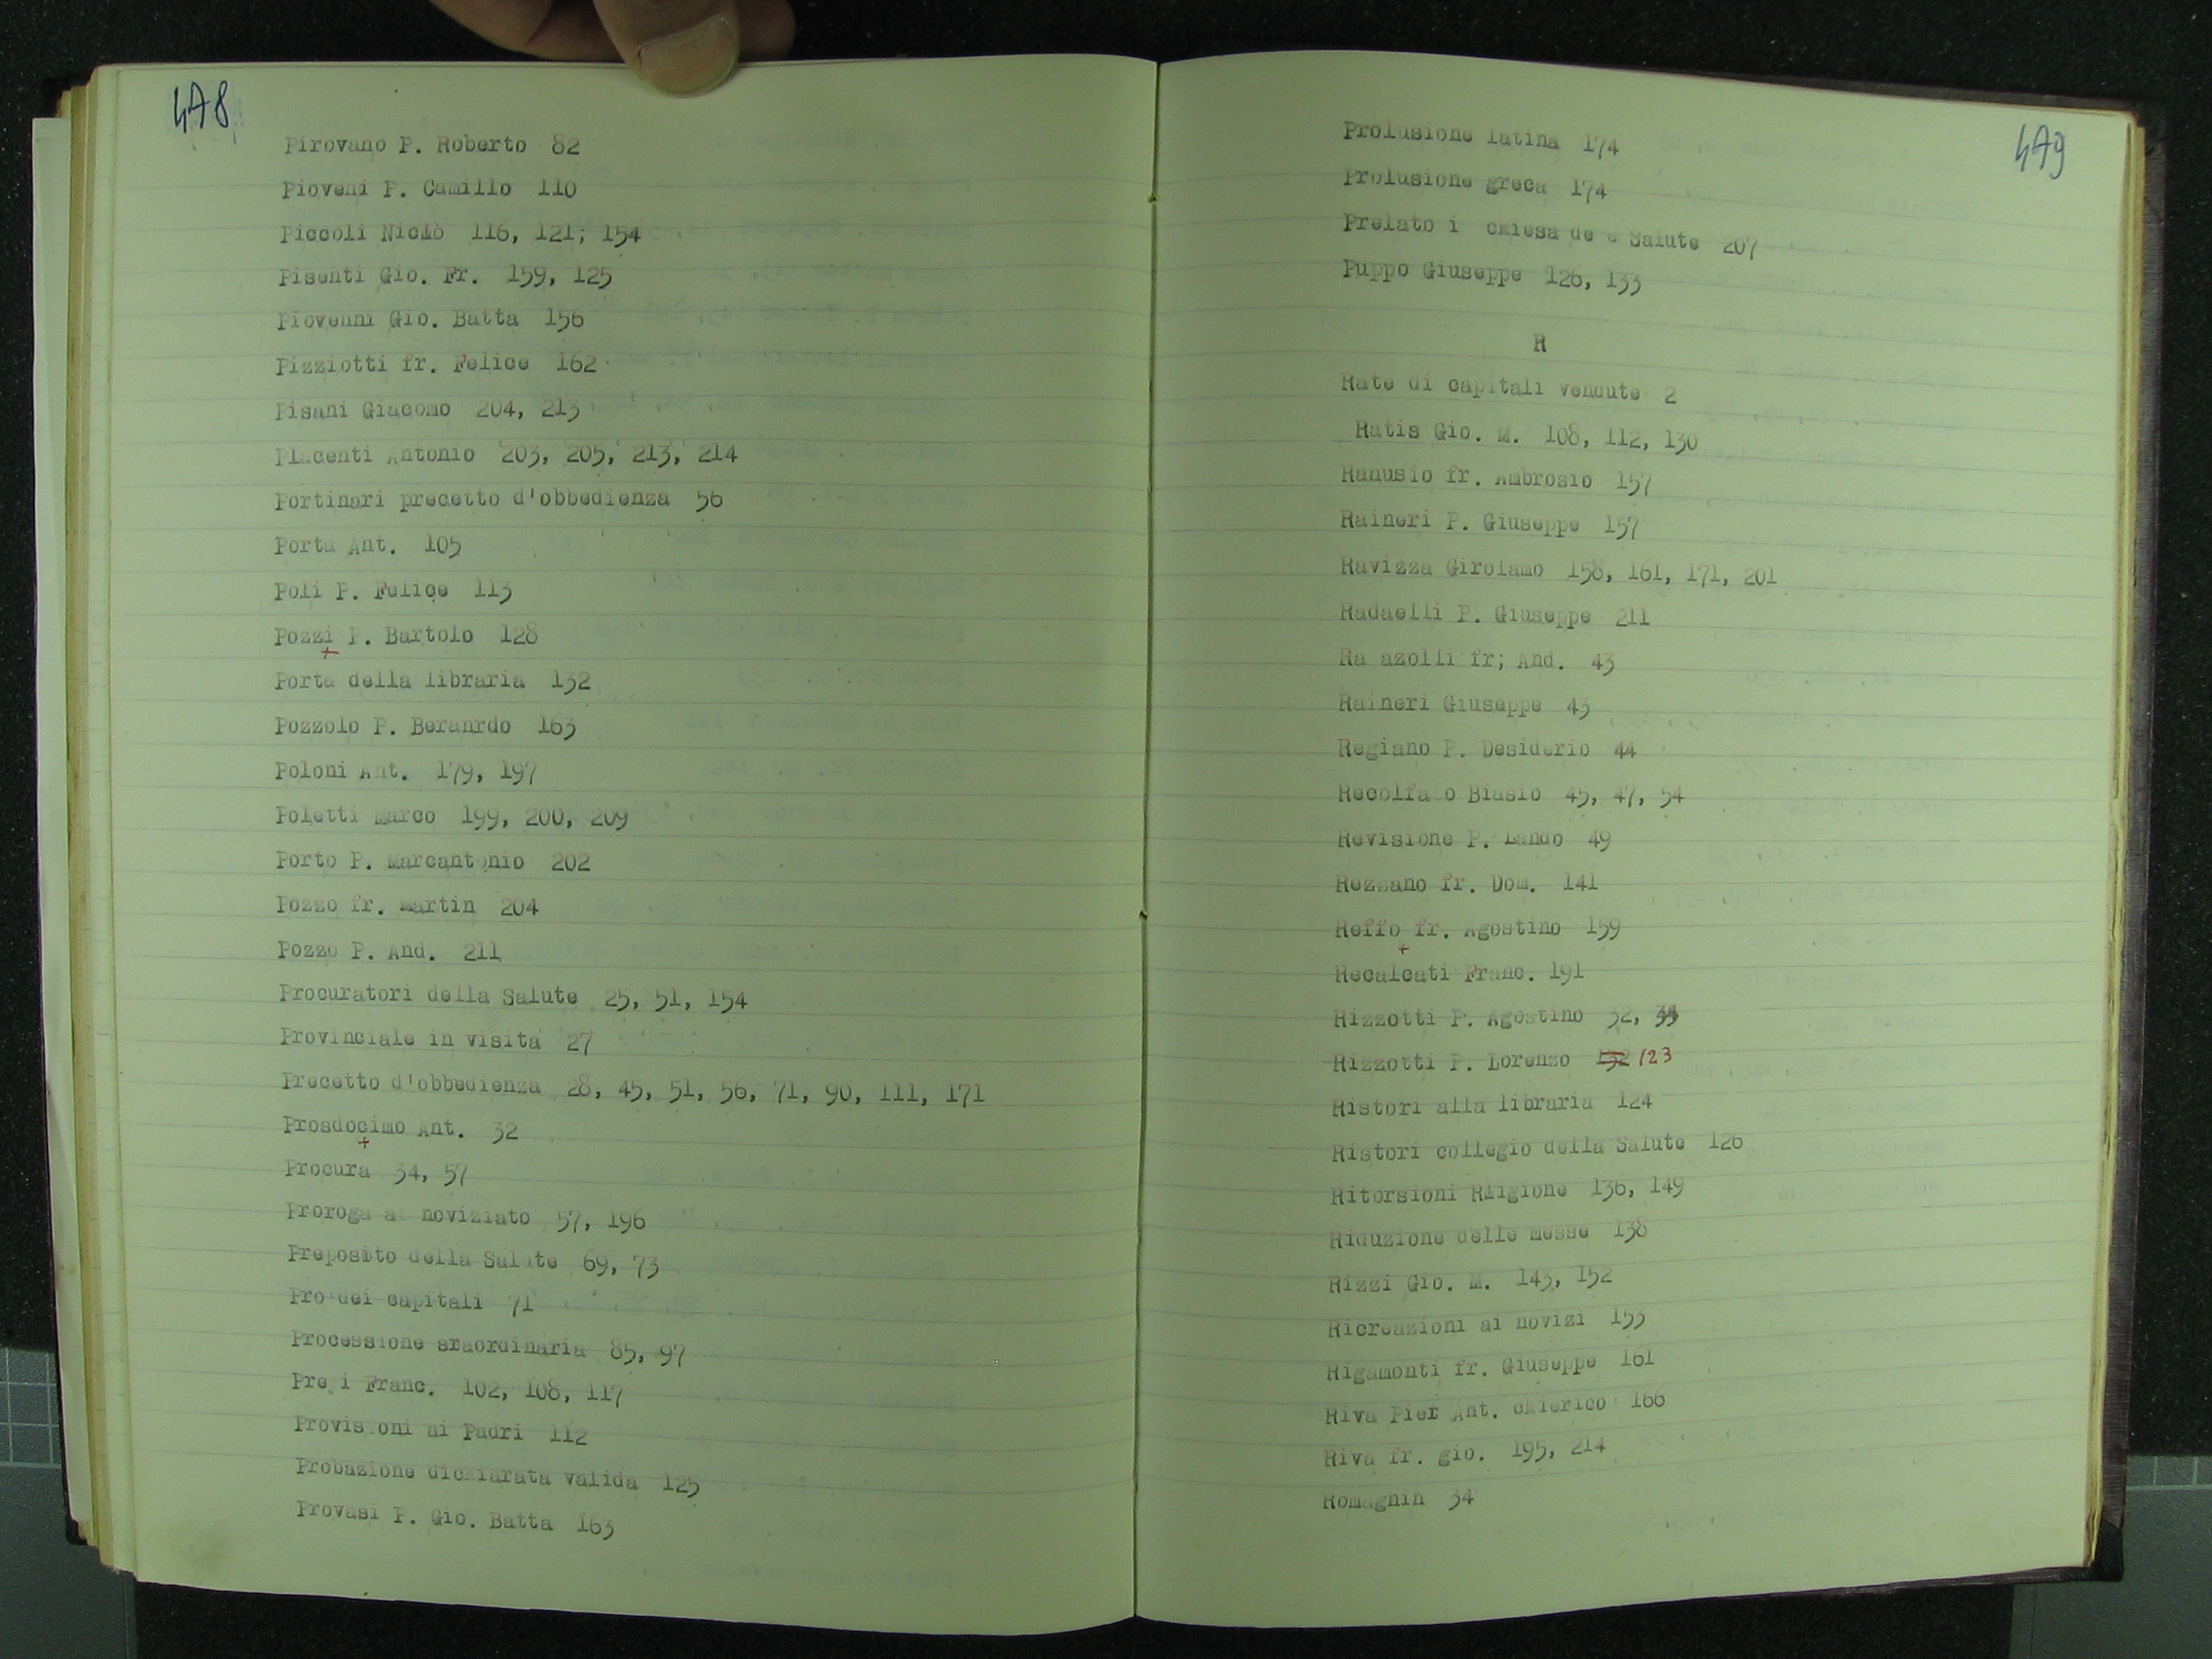 478
Pirovano P. Roberto 82
Pioveni P. Camillo 110
Piccoli Niclò 116, 121; 154
Pisenti Gio. Fr. 159, 125
Piovenni Gio. Batta 156
Pizziotti fr. Felice 162
Pisani Giacomo 204, 213
Placenti Antonio 203, 205, 213, 214
Portinari precetto d'obbedienza 56
Porta Ant. 105
Poli P. Felice 113
Pozzi P. Bartolo 128
+
Porta della libraria 132
Pozzolo P. Beranrdo 163
Poloni Ant. 179, 197
Poletti Marco 199, 200, 209
Porto P. Marcantonio 202
Pozzo fr. Martin 204
Pozzo P. And. 211
Procuratori della Salute 25, 51, 154
Provinciale in visita 27
Precetto d'obbedienza 28, 45, 51, 56, 71, 90, 111, 171
Prosdocimo Ant. 32
+
Procura 34, 57
Proroga al noviziato 57, 196
Preposito della Salute 69, 73
Pro dei capitali 71
Processione sraordinaria 85, 97
Franc. 102, 108, 117
Provisioni ai Padri 112
Probazione dichiarata valida 125
Provasi P. Gio. Batta 163
479
Prolusione latina 174
Prolusione greca 174
Prelato i chiesa de e Salute 207
Puppo Giuseppe 126, 133
R
Rate di capitali vendute 2
Ratis Gio. M. 108, 112, 130
Ranusio fr. Ambrosio 157
Raineri P. Giuseppe 157
Ravizza Girolamo 158, 161, 171, 201
Radaelli P. Giuseppe 211
Ra azolli fr; And. 43
Raineri Giuseppe 43
Regiano P. Desiderio 44
Recolfato Biasio 45, 47, 54
Revisione P. Lando 49
Rezzano fr. Dom. 141
Reffo fr. Agostino 159
+
Recalcati Franc. 191
Rizzotti P. Agostino 32,
Rizzotti P. Lorenzo 132 123
Ristori alla libraria 124
Ristori collegio della Salute 126
Ritorsioni Rligione 136, 149
Riduzione delle messe 138
Rizzi Gio. M. 143, 152
Ricreazioni ai novizi 153
Rigamonti fr. Giuseppe 161
Riva Pier Ant. chierico 166
Riva fr. gio. 195, 214
Romagnin 34